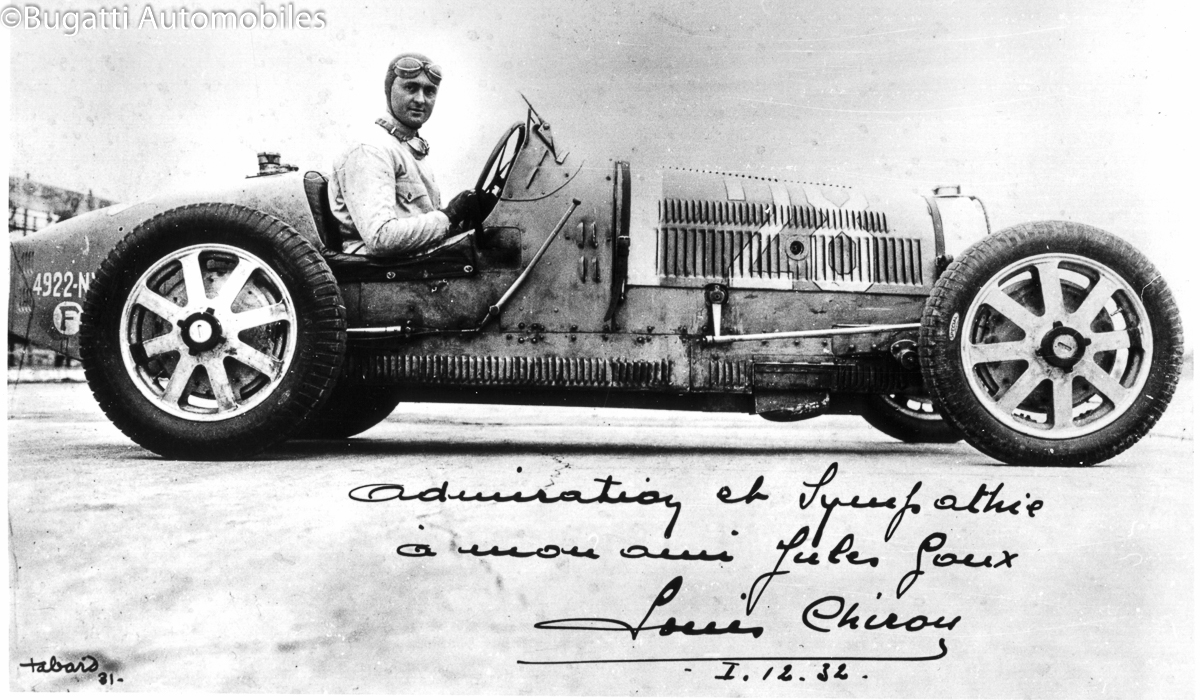 ©Bugatti Automobiles
4922-N
F
admiration et Sympathie
à mon ami Jules Goux
Louis Chiron
- I.12.32.
tabard
31-